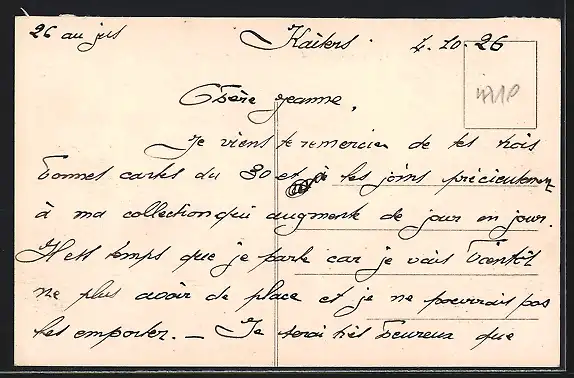 26 au jus Kaiters. 4.10.26
Chère Jeanne,
Je viens te remercier de tes trois
bonnes cartes du 30 et les joins précieusement
à ma collection qui augmente de jour en jour.
Il est temps que je parte car je vais bientôt
ne plus avoir de place et je ne pourrais pas
les emporter. — Je serai très heureux que